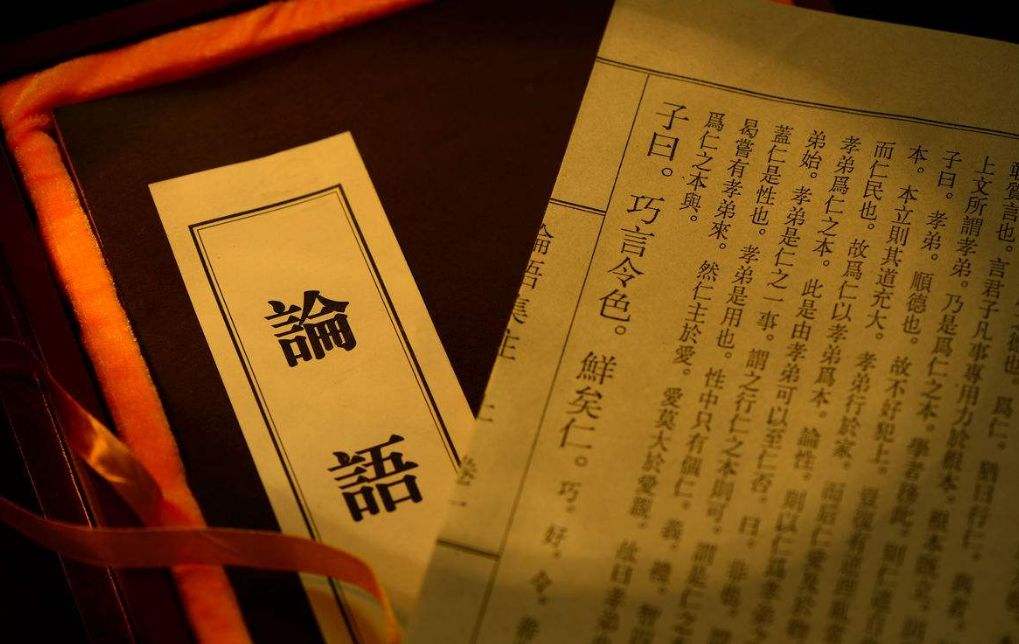 之德也。爲仁。猶曰行仁。與者。
質言也。言君子凡事專用力於根本。根本既立。則
上文所謂孝弟。乃是爲仁之本。學者務此。則仁道自
子曰。孝弟。順德也。故不好犯上。豈復有逆理亂
本。本立則其道充大。孝弟行於家。而后仁愛及於物
而仁民也。故爲仁以孝弟爲本。論性。則以仁爲孝弟之
孝弟爲仁之本。此是由孝弟可以至仁否。曰。非也。謂
弟始。孝弟是仁之一事。謂之行仁之本則可。謂是仁之
蓋仁是性也。孝弟是用也。性中只有個仁。義。禮。智
曷嘗有孝弟來。然仁主於愛。愛莫大於愛親。故曰孝弟
爲仁之本與。
子曰。巧言令色。鮮矣仁。巧。好。令。善
論語集注 卷一
論語